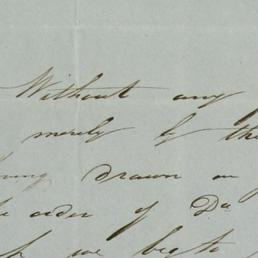 Without any
merely by the
drawn on
order of Da
we beg to